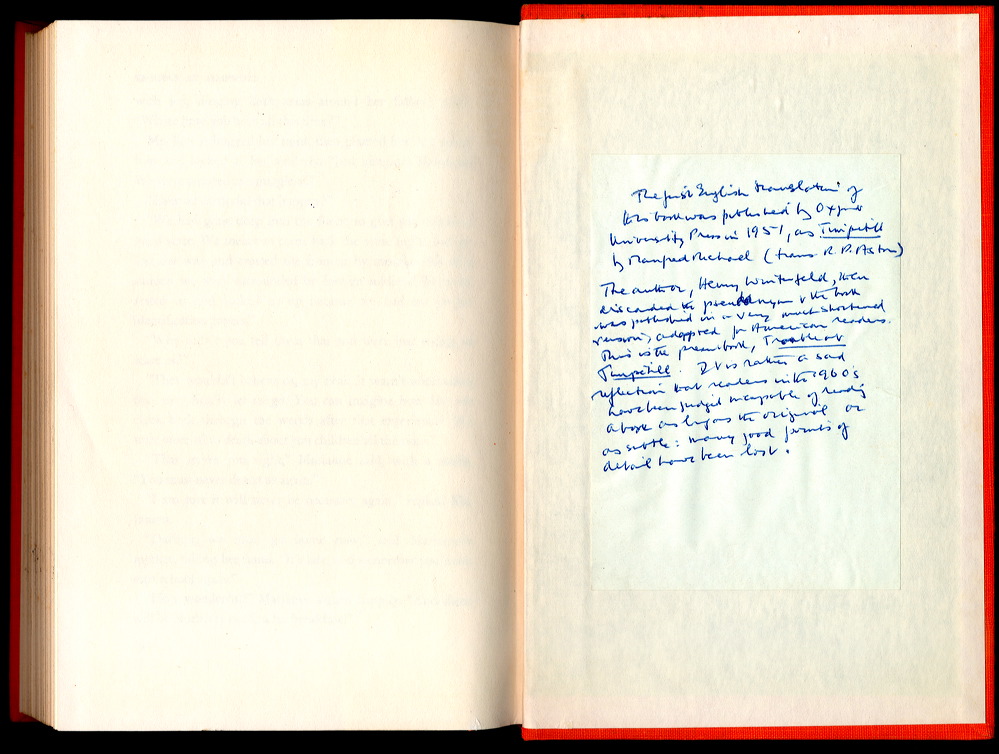 The first English translation of
this book was published by Oxford
University Press in 1951, as Timpetill
by Manfred Michael (trans. R. P. Aston)
The author, Henry Winterfeld, then
discarded the pseudonym & the book
was published in a very much shortened
version, adapted for American readers.
This is the present book, Trouble at
Timpetill. It is rather a sad
reflection that readers in the 1960's
have been judged incapable of reading
a book as long as the original or
as subtle: many good points of
detail have been lost.